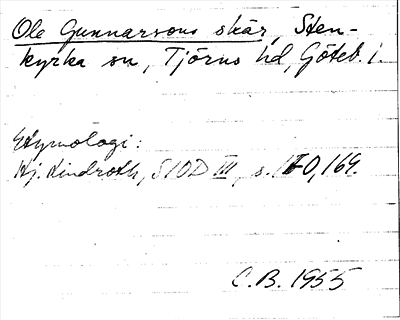 Ole Gunnarsons skär, Sten-
kyrka sn, Tjörns hd, Göteb. l.
Etymologi:
Hj. Lindroth, SIOD III, s. 169.
C.B. 1955